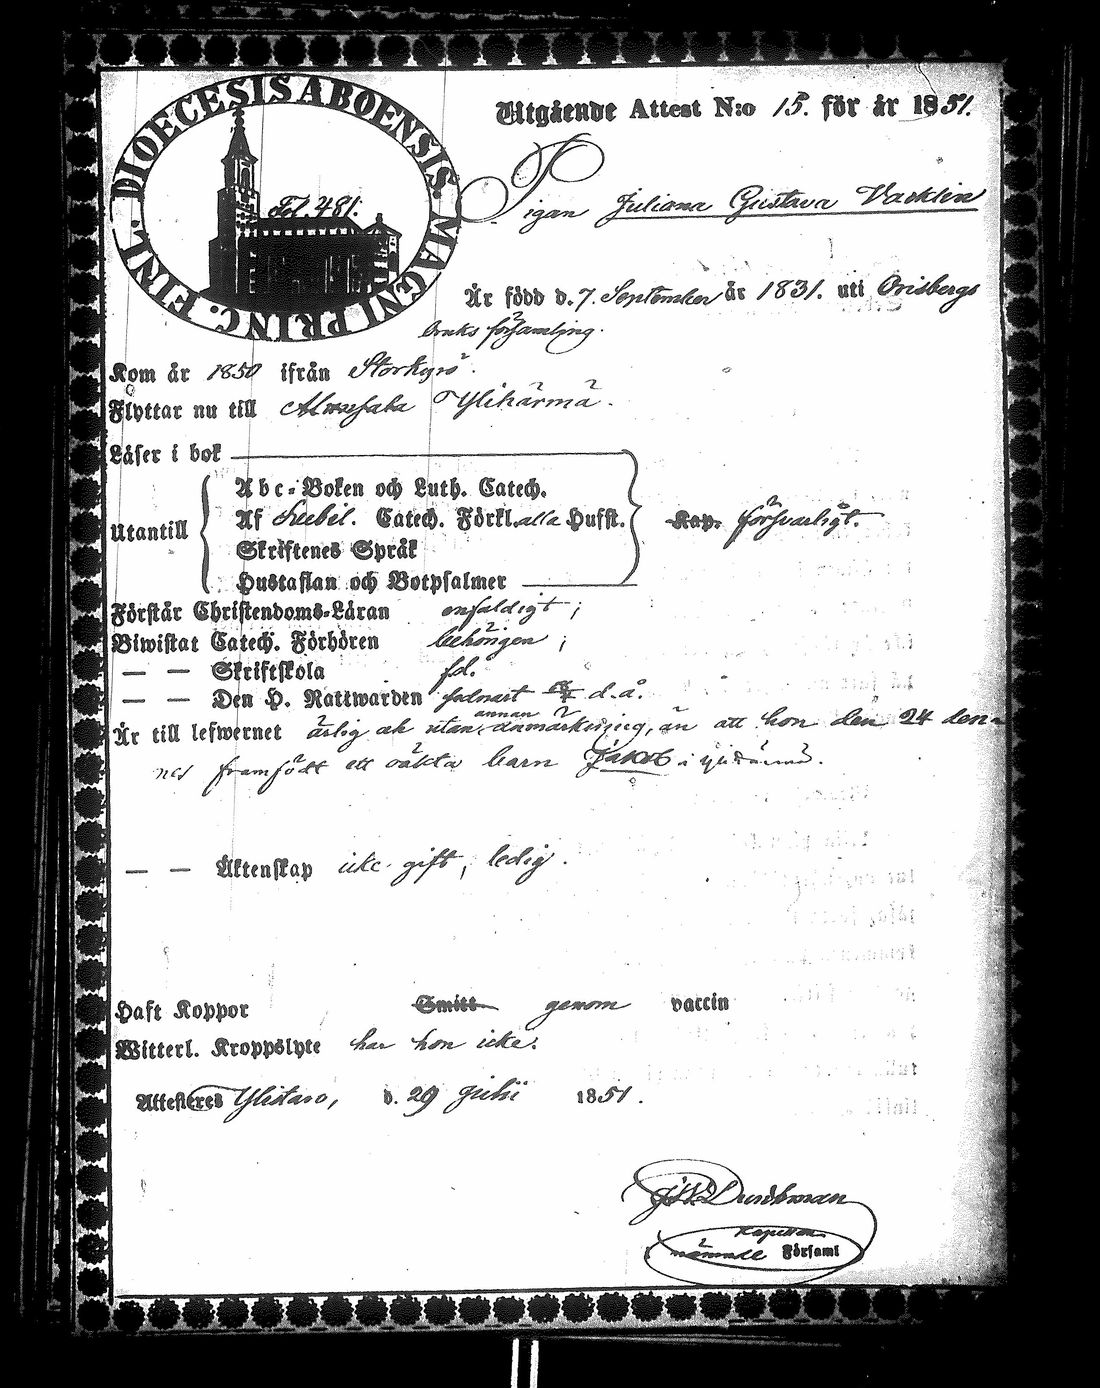 DIOECESIS ABOENSIS. MAGNI PRINC. FINL.
Fol. 481.
Utgående Attest N:o 15. för år 1851.
Pigan Juliana Gustava Vacklin
Är född d. 7. September år 1831. uti Orisbergs
bruks församling.
Kom år 1850 ifrån Storkyrö.
Flyttar nu till Ylihärmä.
Läser i bok
Utantill
Abc-Boken och Luth. Catech.
Af Svebil. Catech. Förkl. alla Hufst.
Skriftenes Språk
Hustaflan och Botpsalmer
Kap. försvarligt.
Förstår Christendoms-Läran enfaldigt;
Biwistat Catech. Förhören behörigen;
— — Skriftskola
— — Den H. Nattwarden d. å.
Är till lefwernet ärlig och utan annan anmärkning, än att hon den 24 den-
nes framfödt ett oäkta barn Jakob i
— — Äktenskap icke gift, ledig.
Haft Koppor Smitt genom vaccin
Witterl. Kroppslyte har hon icke.
Attesteres Ylistaro, d. 29 Julii 1851.
Kapellan
nämnde Församl